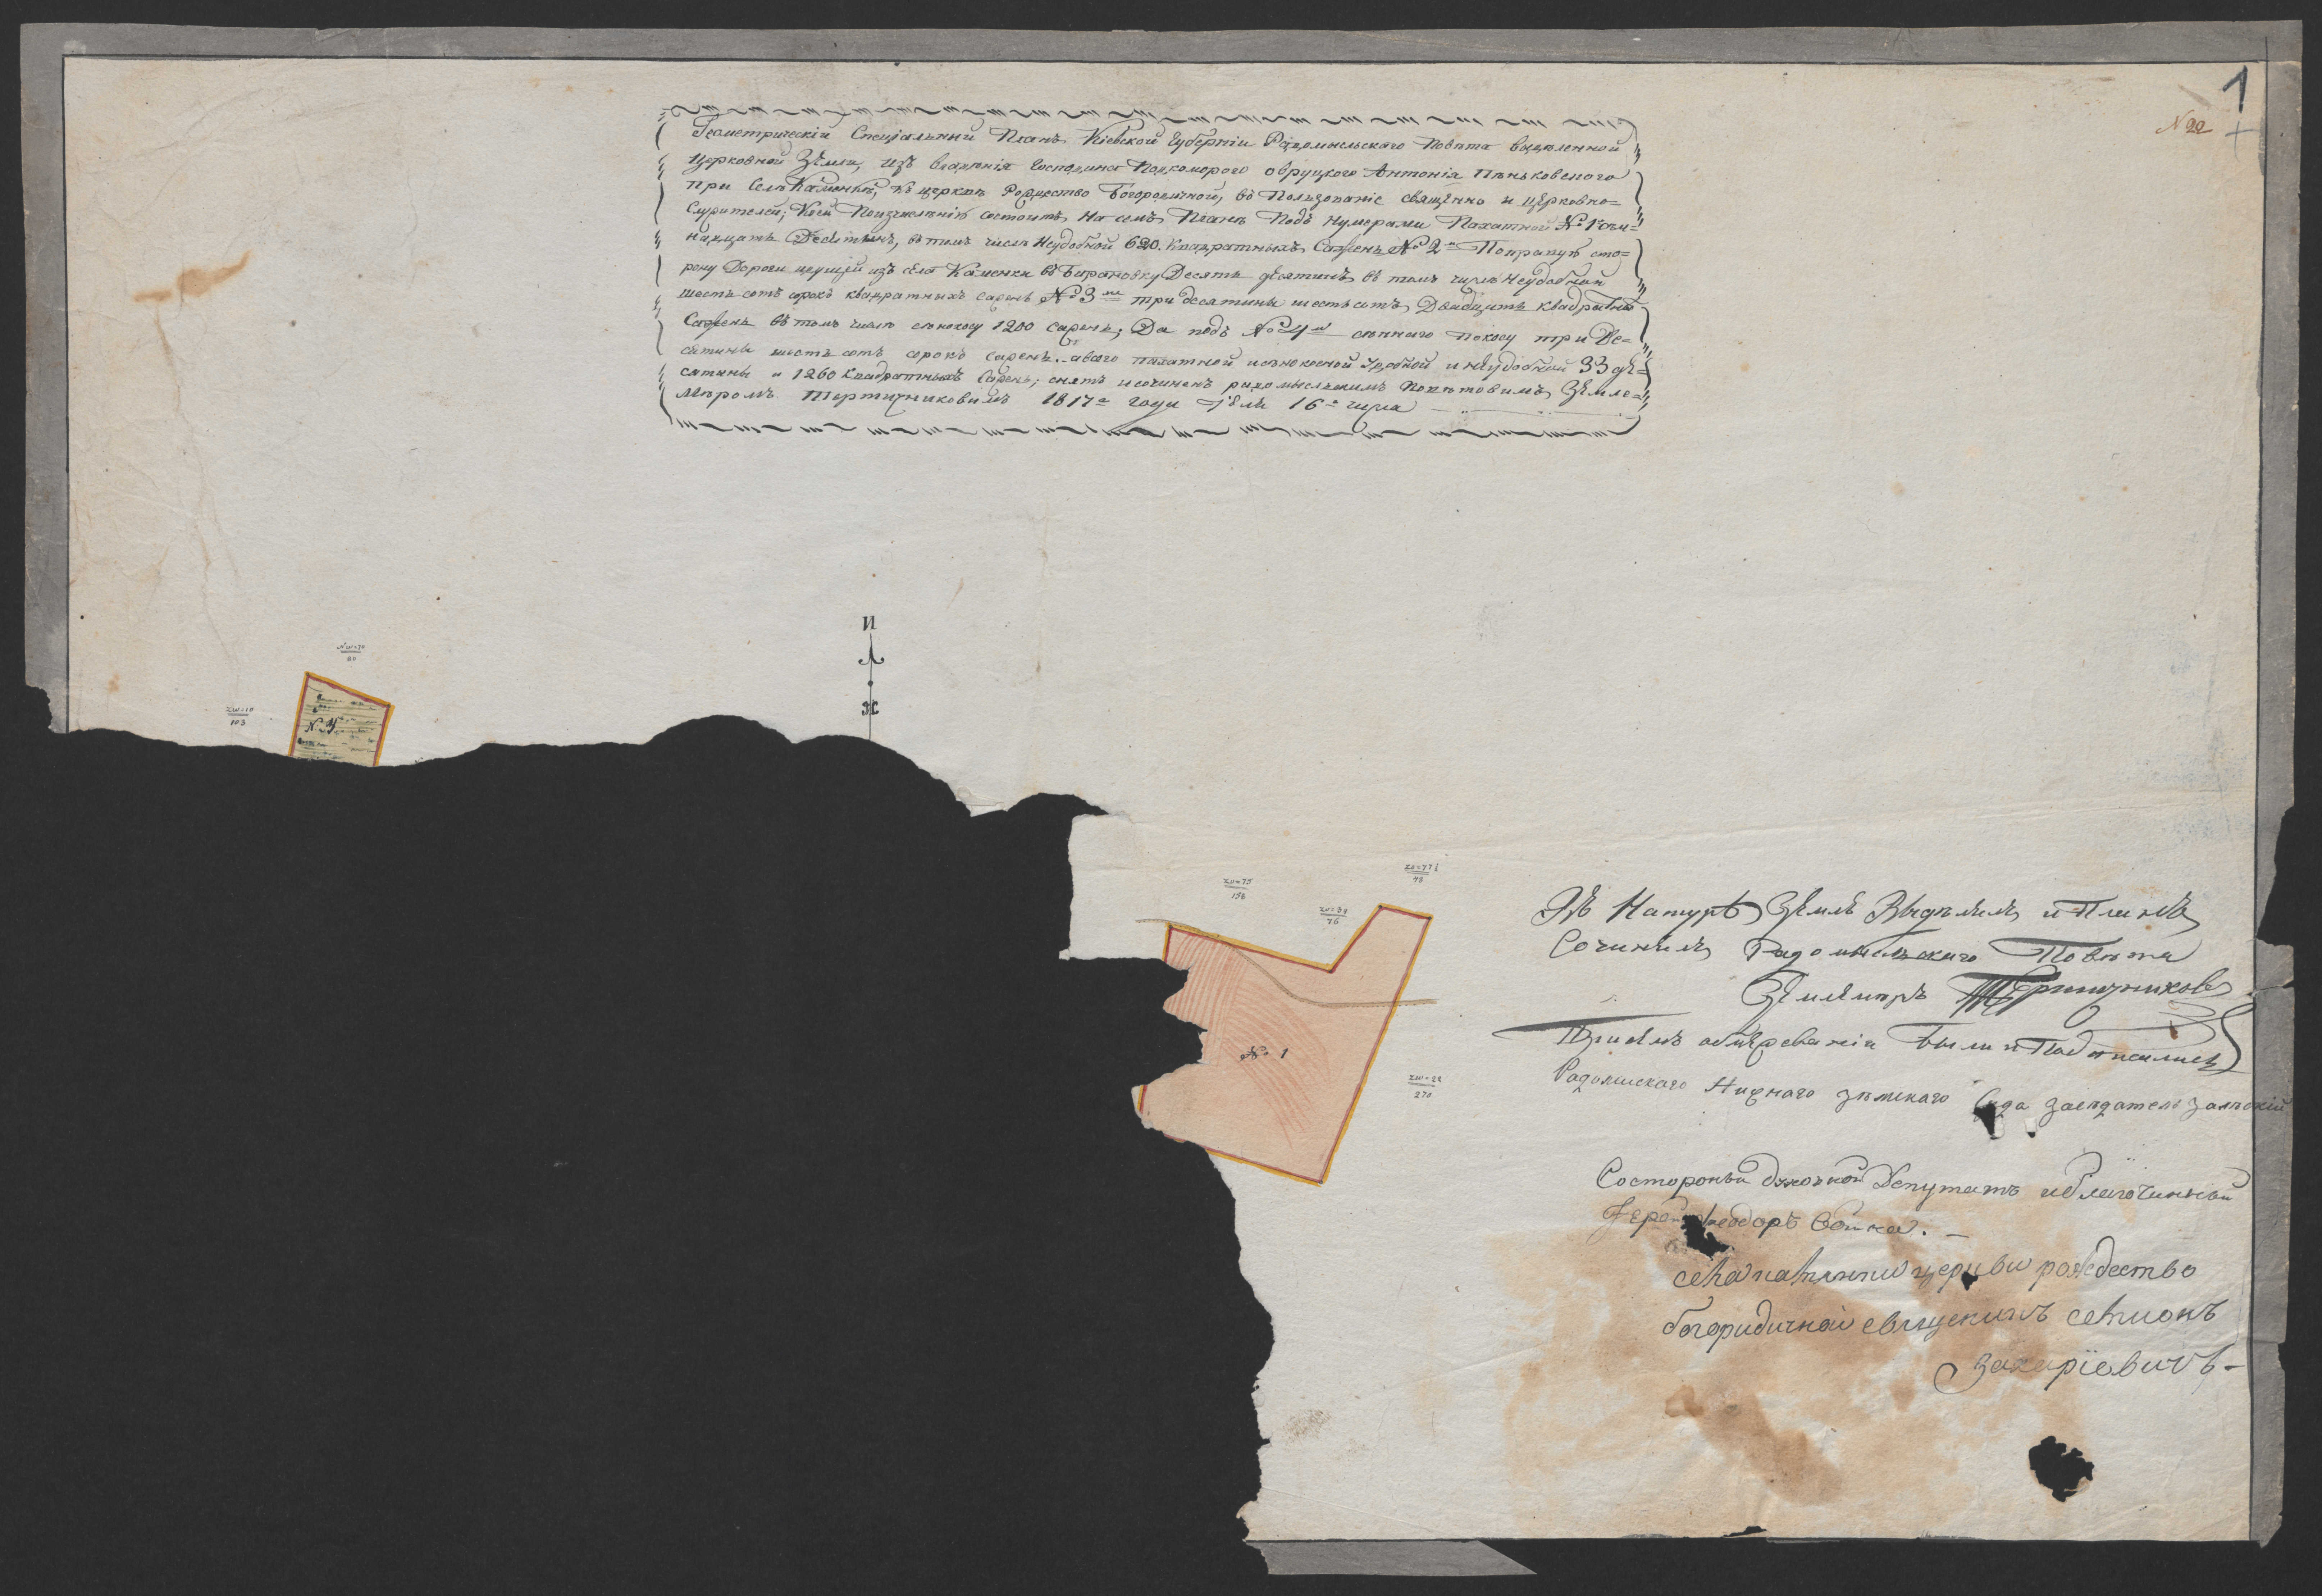 1
N 22
Геометрическій Спеціальный Планъ Кіевской Губерніи Радомысльскаго Повѣта выделенной
Церковной Земли, изъ владенія Господина Подкоморого овруцкого Антонія Пѣньковского
при Селѣ Каменкѣ, къ церквѣ Рождество Богородичной, въ Пользованіе священно и церковно=
Служителей; Коей Поизчисленію состоитъ На семъ Планѣ Подъ Нумерами Пахатной №1
надцать Десятинъ, въ томъ числѣ Неудобной 620. Квадратныхъ Сажень №2 Поправую сто=
рону Дороги идущей изъ села Каменки въ Десять десятинъ въ томъ числѣ Неудобной
шесть сотъ сорокъ квадратныхъ сажень №3 три десятины шесть сотъ Двадцать квадратныхъ
Сажень въ томъ числѣ сенокосу 1200 сажень; Да подъ №4 сеннаго покосу три Де=
сятины шесть сотъ сорокъ сажень. а всего пахатной исенокосной Удобной и неудобной 33 де=
сятины и 1260 Квадратныхъ Сажень; снятъ исочиненъ радомысльскимъ Повѣтовимъ Землѣ=
мѣромъ Тертичниковимъ 1817 года Іюля 16 числа
И
80
103
N 4
75
156
76
48
№ 1
ZW=22
270
Въ Натурѣ Землѣ Выделилъ и Планъ
Сочинилъ Радомысльскаго Повѣта
Землемѣръ Тертичниковъ
Присемъ обмежеваніи Были и Подписались
Радомысскаго Нижнаго земскаго Суда заседатель
Состороны духовной Депутатъ иблагочинный
Іерей Феодоръ
села каменки церкви рождество
богородичной священикъ симионъ
Захаріевичъ-